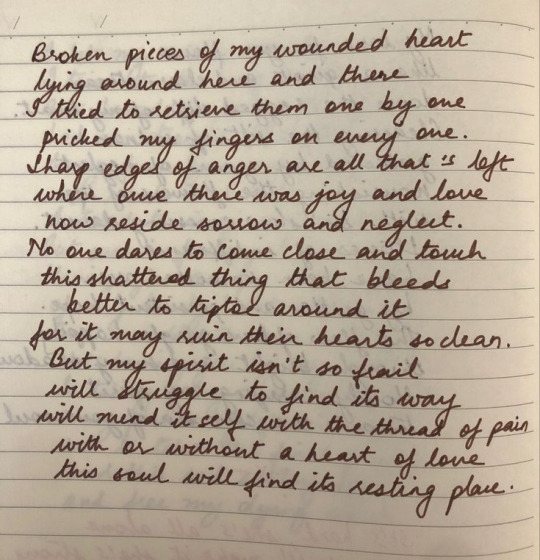 Broken pieces of my wounded heart
lying around here and there
I tried to retrieve them one by one
pricked my fingers on every one.
Sharp edges of anger are all that is left
where once there was joy and love
now reside sorrow and neglect.
No one dares to come close and touch
this shattered thing that bleeds
better to tiptoe around it
for it may ruin their hearts so clean.
But my spirit isn't so frail
will struggle to find its way
will mend it self with the thread of pain
with or without a heart of love
this soul will find its resting place.